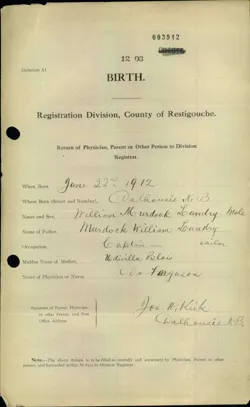 093912
12 93
Definition A1
BIRTH.
Registration Division, County of Restigouche.
Return of Physician, Parent or Other Person to Division
Registrar.
When Born June 22nd 1912
Where Born (Street and Number), Dalhousie N.B.
Name and Sex William Murdock Landry Male
Name of Father, Murdock William Landry
Occupation, Captain sailor
Maiden Name of Mother, Blois
Name of Physician or Nurse, Ferguson
Signature of Parent, Physician
or other Person, and Post
Office Address
Jos. H. Kirk
Dalhousie N.B.
NOTE.—The above Return is to be filled in carefully and accurately by Physician, Parent or other
person, and forwarded within 30 days to Division Registrar.